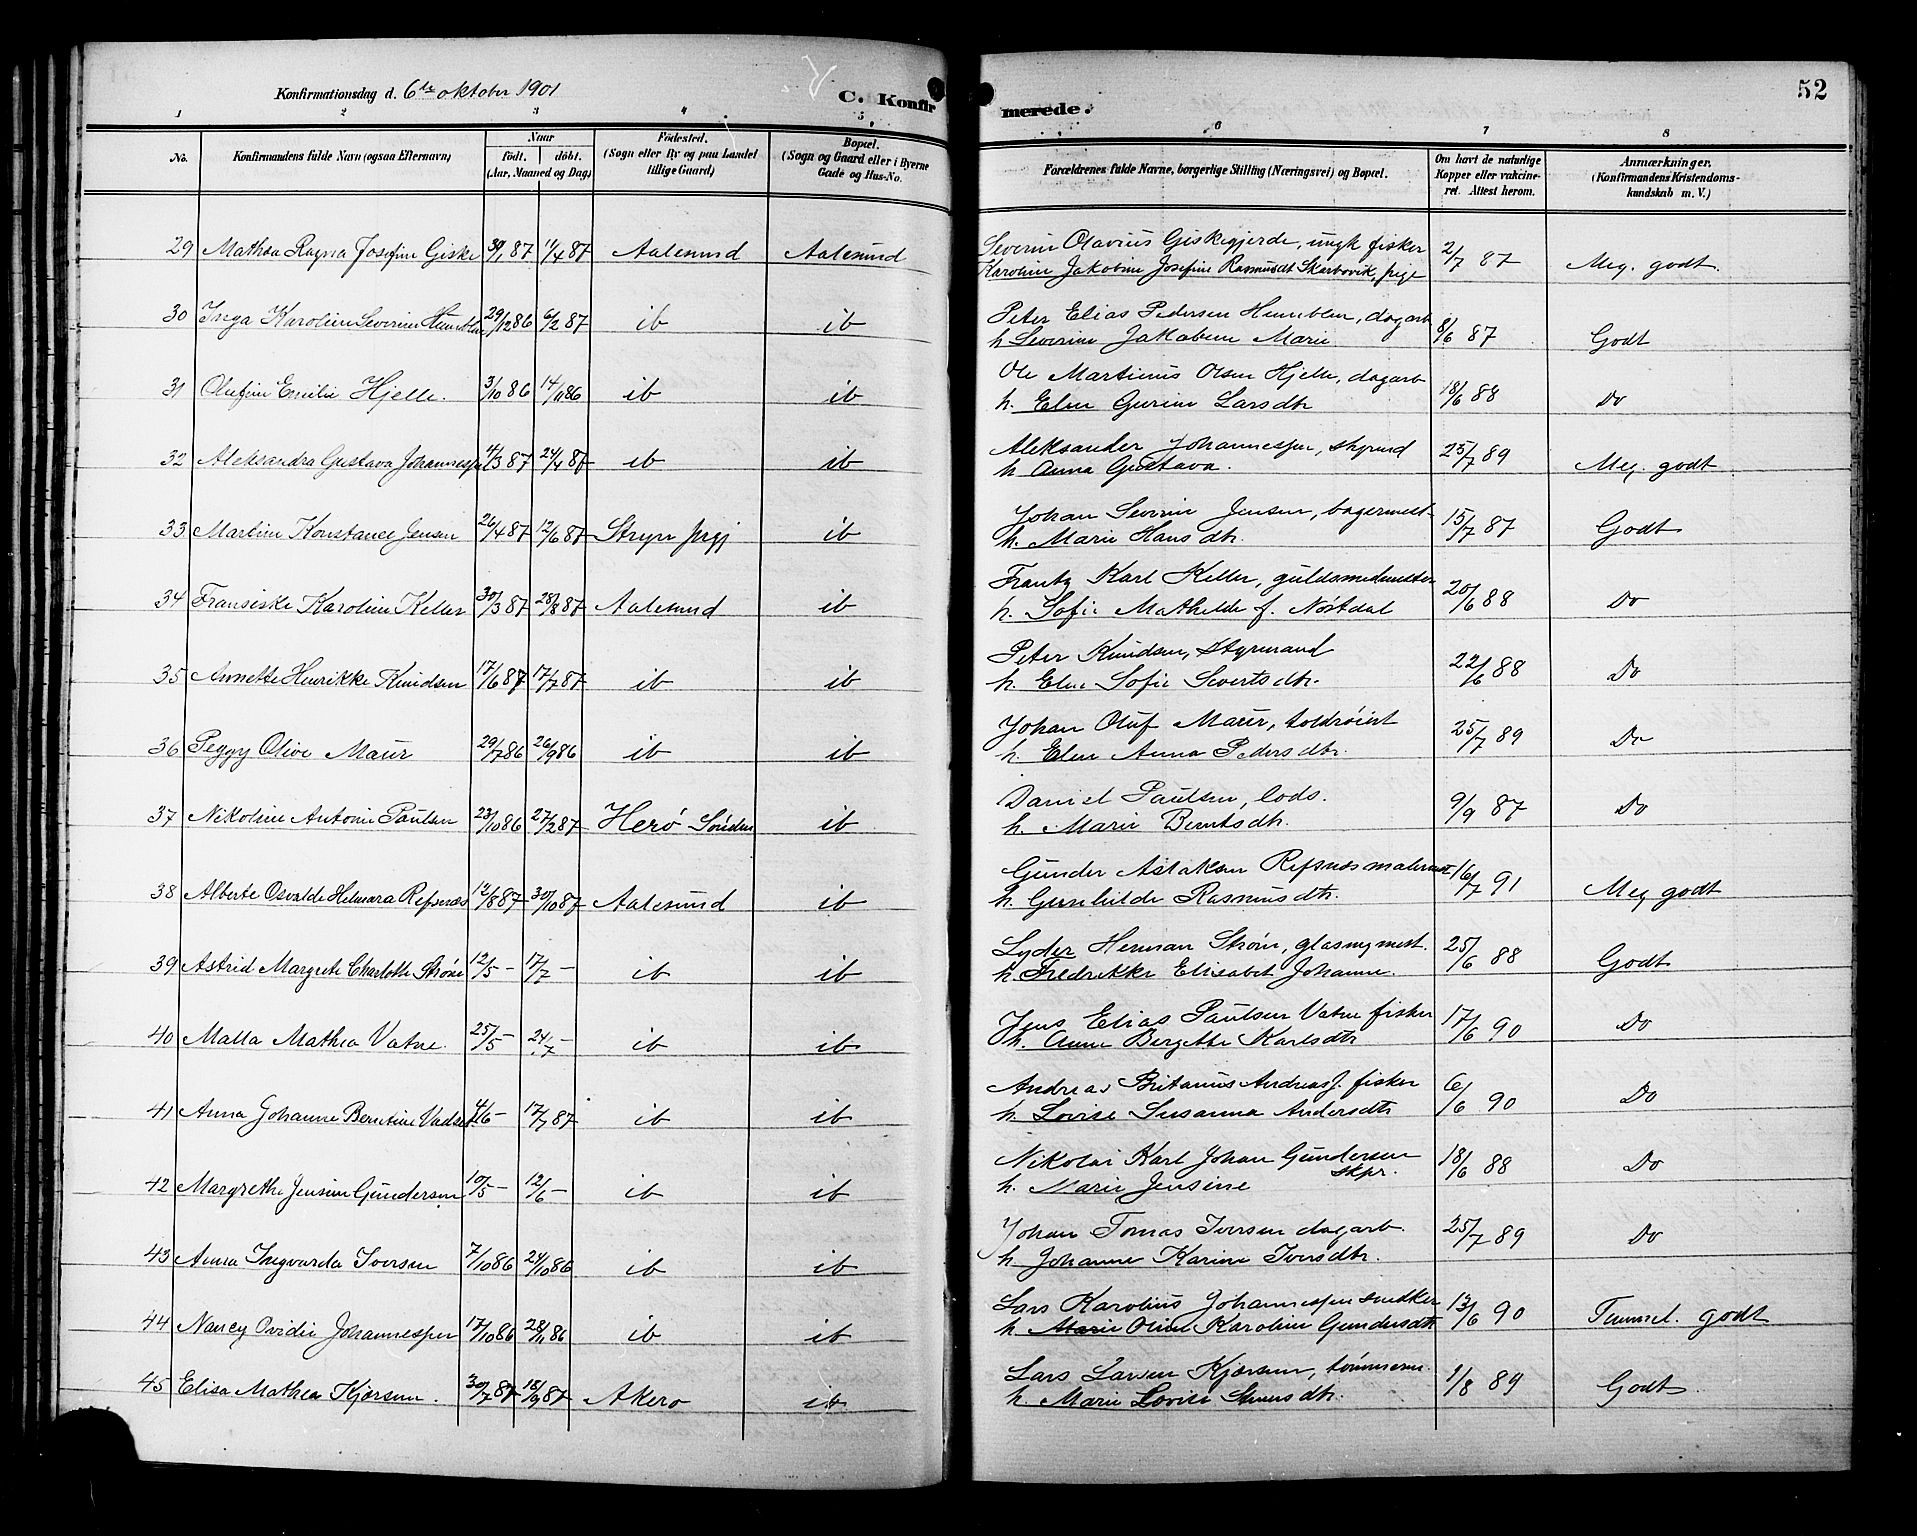 52
Konfirmationsdag d. 6te oktober 1901
C. Konfir
merede.
1 2 3 4 5 6 7 8
No. Konfirmandens fulde Navn (ogsaa Efternavn) Naar født. døbt. (Aar, Maaned og Dag) Fødested. (Sogn eller By og paa Landet tillige Gaard) Bopæl. (Sogn og Gaard eller i Byerne Gade og Hus-No. Forældrenes fulde Navne, borgerlige Stilling (Næringsvei) og Bopæl. Om havt de naturlige Kopper eller vakcineret. Attest herom. Anmærkninger. (Konfirmandens Kristendomskundskab m. V.)
Severin Olavius Giskegjerde, ungk fisker
29 Mathea Ragna Josefine Giske 30/1 87 11/4 87 Aalesund Aalesund Karoline Jakobine Josefine Rasmusdt Skarbøvik, pige 2/7 87 Meg. godt.
Peter Elias Pedersen Humblen, dagarb
30 Inga Karoline Severine Humblen 29/12 86 6/2 87 ib ib h Severine Jakobine Marie 8/6 87 Godt
Ole Martinus Olsen Hjelle, dagarb
31 Olufine Emilie Hjelle. 3/10 86 14/11 86 ib ib h. Elen Gurine Larsdtr 18/6 88 Do
Aleksander Johannessen, skyrmd
32 Aleksandra Gustava Johannessen 4/3 87 24/4 87 ib ib h Anna Gustava. 25/7 89 Meg. godt
Johan Severin Jensen, bagermest
33 Martine Konstance Jensen 26/4 87 12/6 87 Stryn prgj ib h. Marie Hansdtr. 15/7 87 Godt
Frantz Karl Keller, guldsmedmester
34 Fransiske Karoline Keller 30/3 87 28/8 87 Aalesund ib h. Sofie Mathilde f. Nøstdal 20/6 88 Do
Peter Knudsen, Styrmand
35 Annette Henrikke Knudsen 17/6 87 17/7 87 ib ib h. Elen Sofie Sivertsdtr. 22/6 88 Do
Johan Oluf Maur, toldrøiert
36 Peggy Olive Maur 29/7 86 26/9 86 ib ib h. Elen Anna Pedersdtr. 25/7 89 Do
Daniel Paulsen, lods.
37 Nikoline Antonie Paulsen 23/10 86 27/2 87 Herø Søndm ib h. Marie Berntsdtr. 9/9 87 Do
Gunder Aslaksen Refsnes malermst
38 Alberte Osvalde Helmara Refsnæs 12/8 87 30/10 87 Aalesund ib h. Gunhilde Rasmusdtr. 16/7 91 Meg godt
Lyder Herman Strøm, glasmgmest.
39 Astrid Margrete Charlotte Strøm 12/5 - 17/7 - ib ib h. Fredrikke Elisabet Johanne. 25/6 88 Godt
Jens Elias Paulsen Vatne fisker
40 Malla Mathea Vatne. 25/5 - 24/7 - ib ib h. Anne Bergette Karlsdtr 17/6 90 Do
Andreas Britanus Andreasf. fisker
41 Anna Johanne Berntine Vadset 4/6 - 17/7 87 ib ib h. Lovise Susanna Andersdtr 6/6 90 Do
Nikolai Karl Johan Gundersen skpr.
42 Margrethe Jensine Gundersen 10/5 - 12/6 - ib ib h. Marie Jensine 18/6 88 Do
Johan Tomas Iversen dagarb.
43 Anna Ingvarda Iversen 7/10 86 24/10 86 ib ib h Johanne Karine Iversdtr. 25/7 89 Do
Lars Karolius Johannessen snedker
44 Nancy Ovidie Johannessen 17/10 86 28/11 86 ib ib h. Marie Oline Karoline Gundersdtr 13/6 90 Temmel. godt
Lars Larsen Kjørsen, tømmerm.
45 Elisa Mathea Kjørsen. 30/7 87 18/9 87 Akerø ib h. Marie Lovise Siversdtr. 1/8 89 Godt.